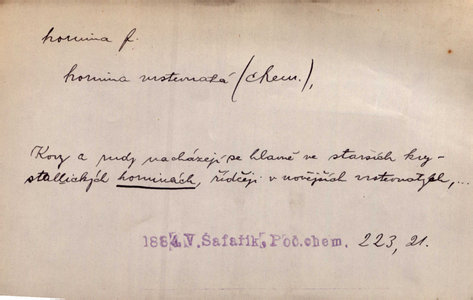 hornina f.
hornina vrstevnatá (chem.),
Kovy a rudy nacházejí se hlavně ve starších kry-
stallických horninách, řídčeji v novějších vrstevnatých, ...
1884 V. Šafařík, Poč. chem. 223, 21.